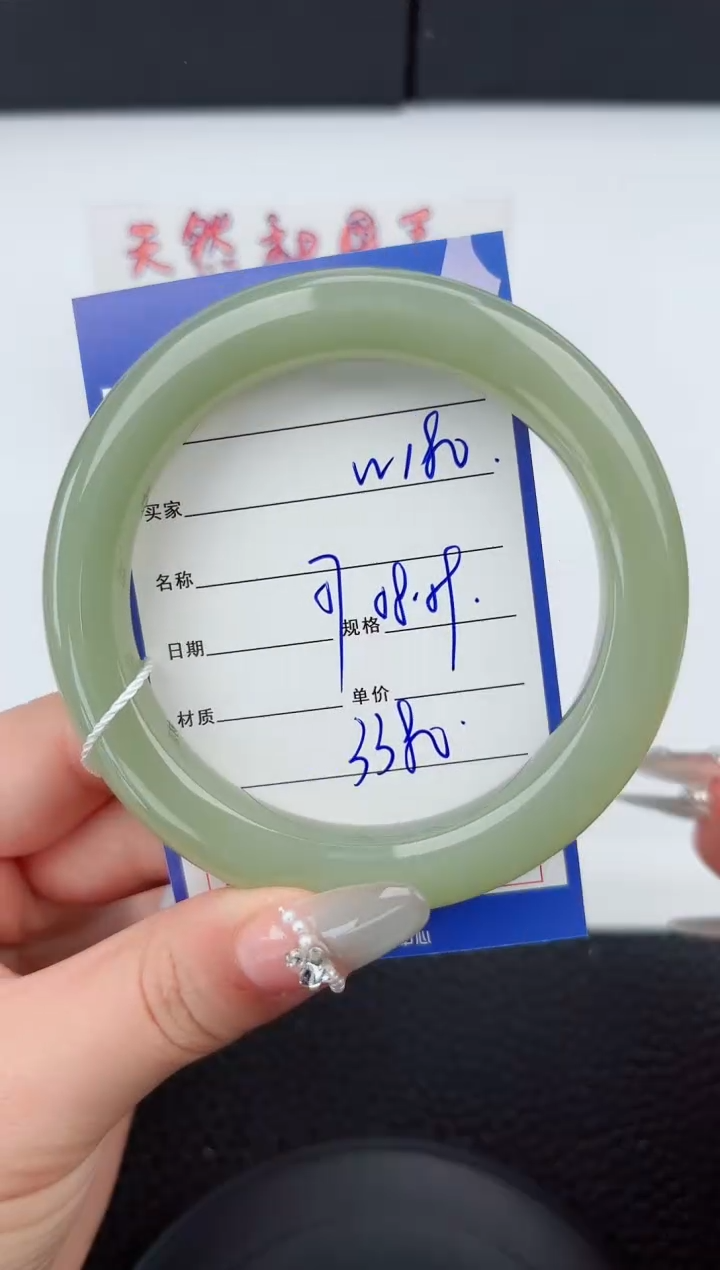 天然和田玉
W180.
买家
名称
日期 规格
材质 单价
3380.